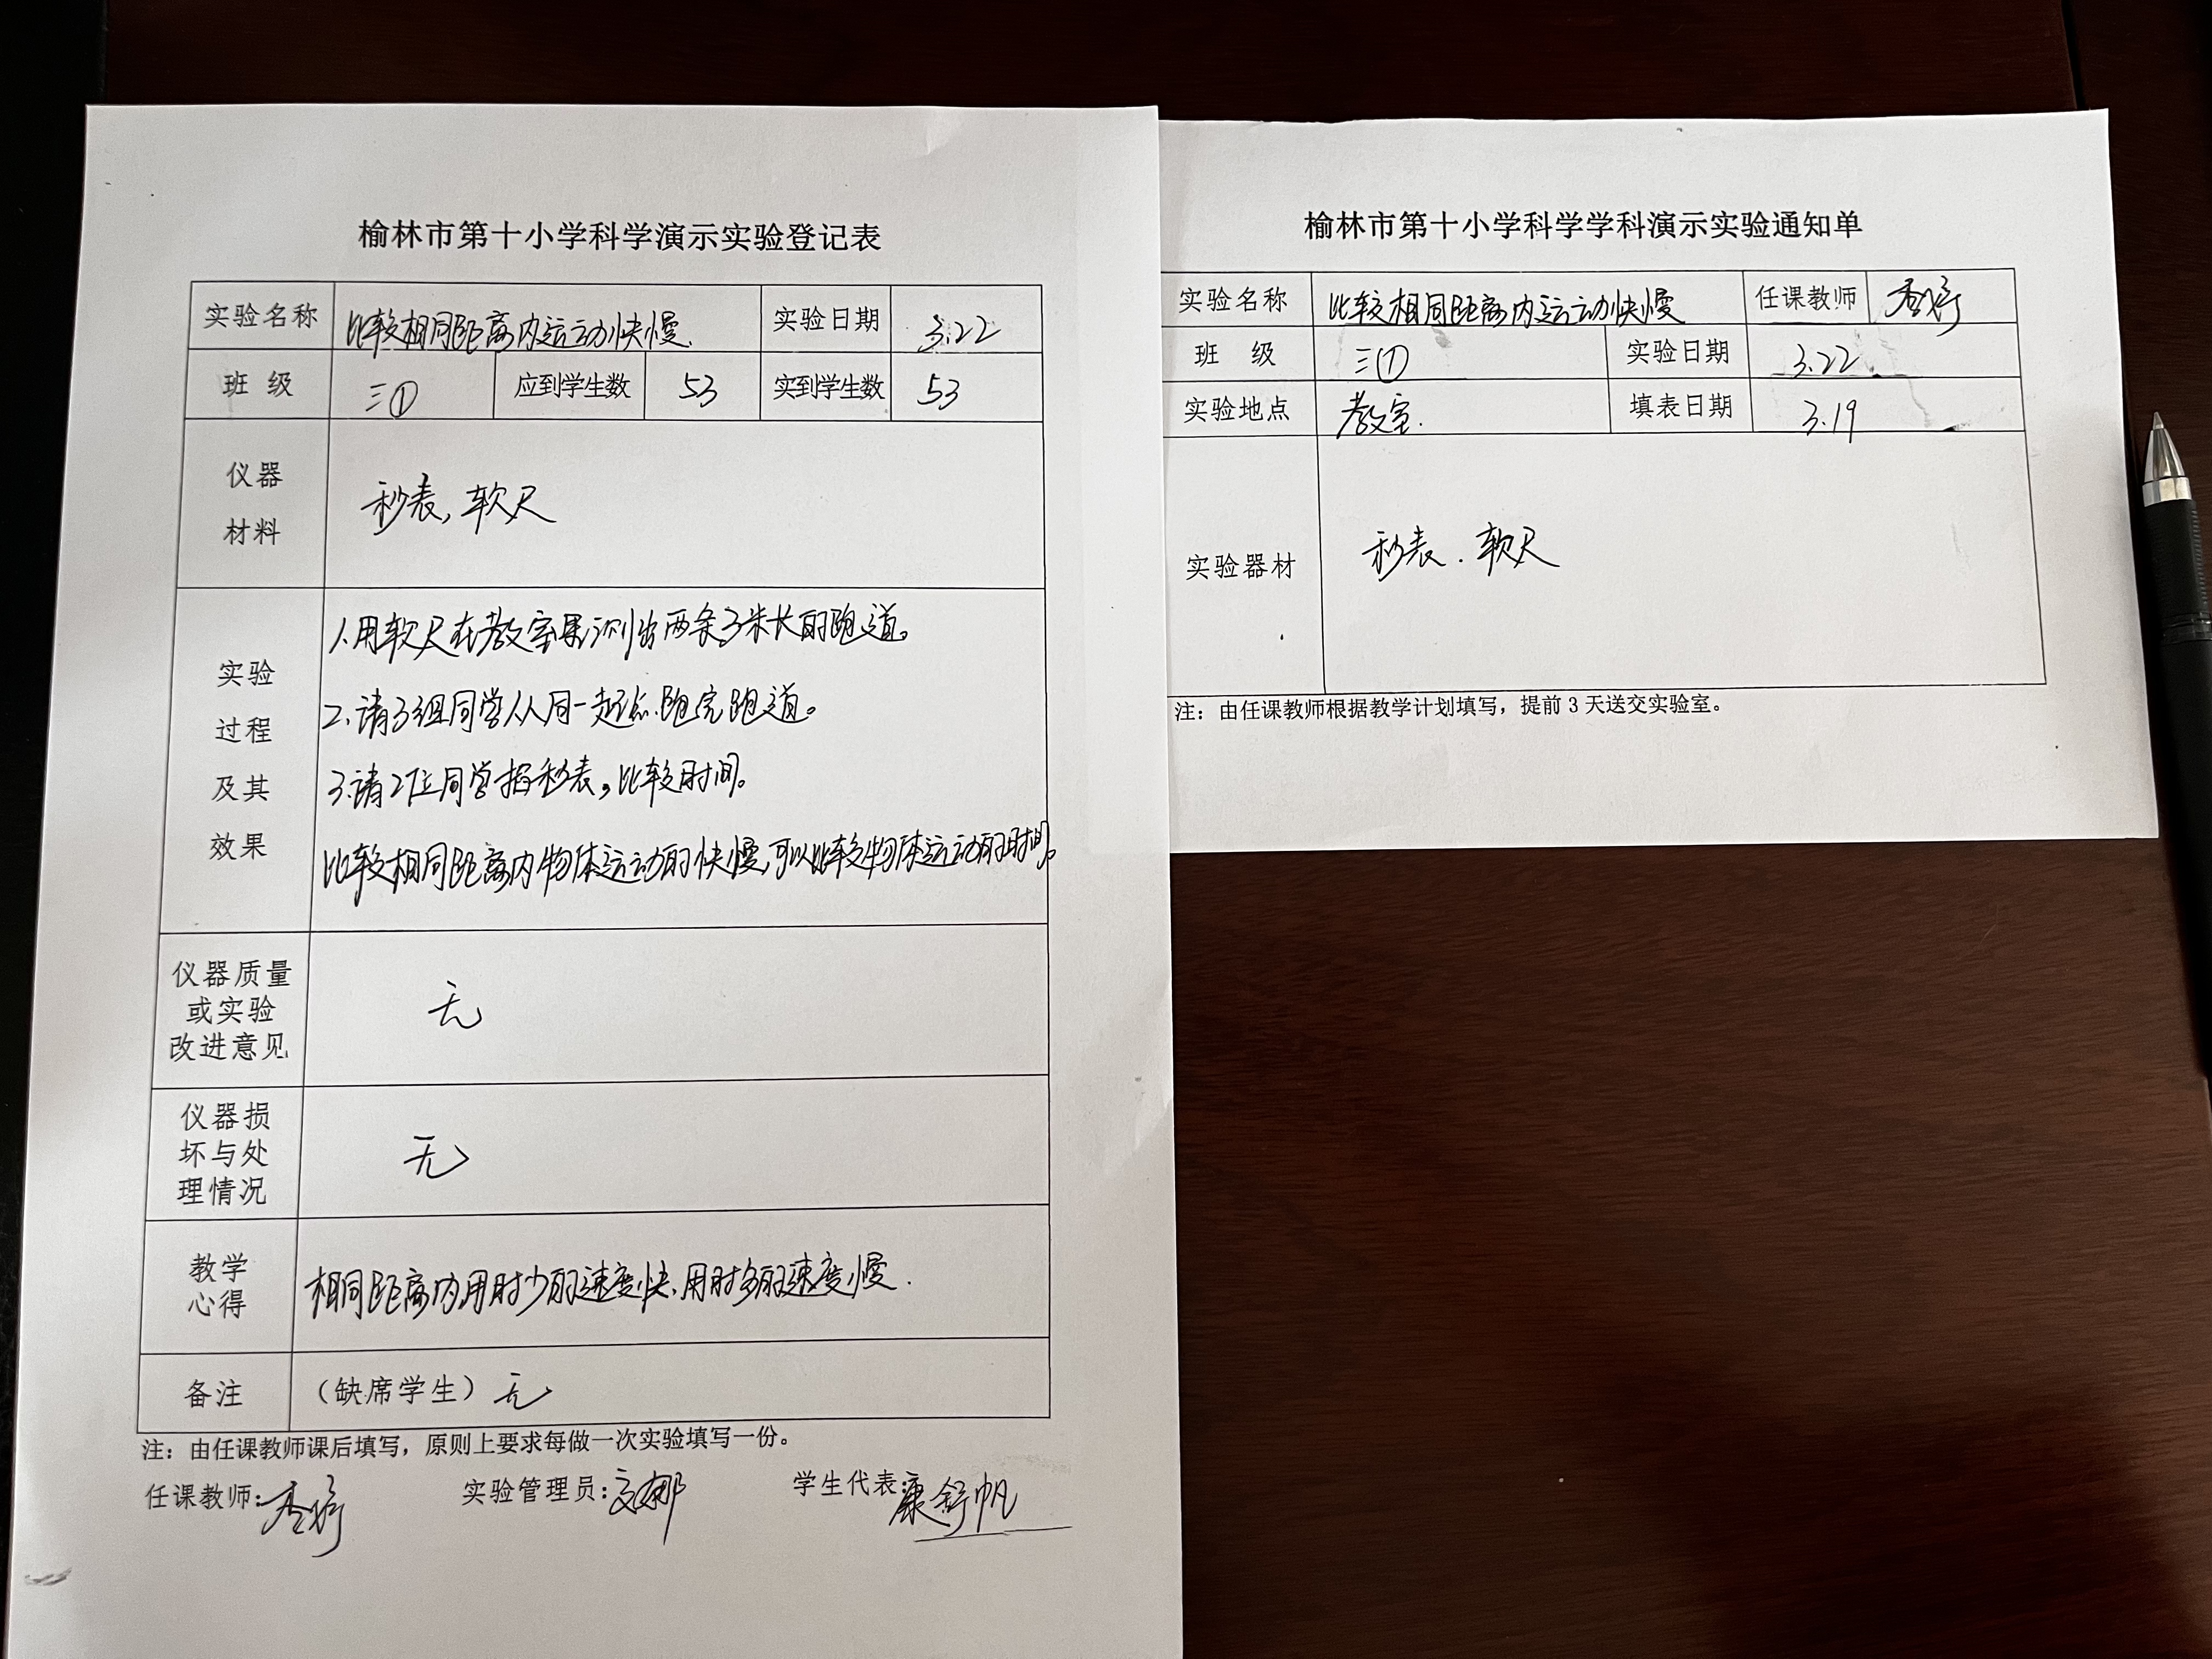 榆林市第十小学科学演示实验登记表
实验名称 比较相同距离内运动快慢. 实验日期 3.22
班 级 三① 应到学生数 53 实到学生数 53
仪器
材料
秒表, 软尺
实验
过程
及其
效果
1.用软尺在教室里测出两条3米长的跑道。
2.请3组同学从同一起点跑完跑道。
3.请2位同学掐秒表,比较时间。
比较相同距离内物体运动的快慢,可以比较物体运动的时间。
仪器质量
或实验
改进意见
无
仪器损
坏与处
理情况
无
教学
心得
相同距离内用时少的速度快,用时多的速度慢.
备注 （缺席学生）无
注：由任课教师课后填写，原则上要求每做一次实验填写一份。
任课教师: 实验管理员: 学生代表:康舒帆
榆林市第十小学科学学科演示实验通知单
实验名称 比较相同距离内运动快慢 任课教师
班 级 三① 实验日期 3.22
实验地点 教室. 填表日期 3.19
实验器材 秒表.软尺
注：由任课教师根据教学计划填写，提前 3 天送交实验室。